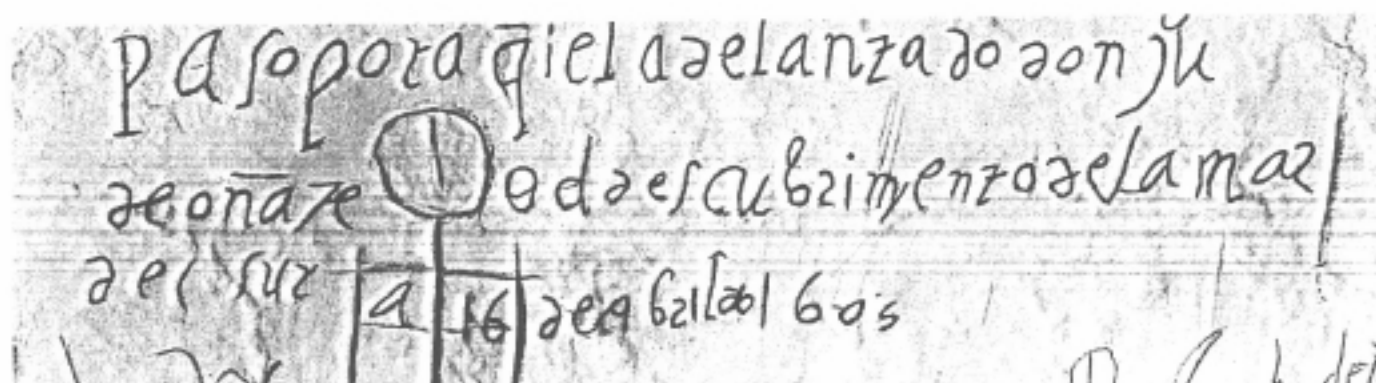 paso por aq̄i el adelantado don ju
de oñate del descubrimento de la mar
del sur a 16 de abril del 1605